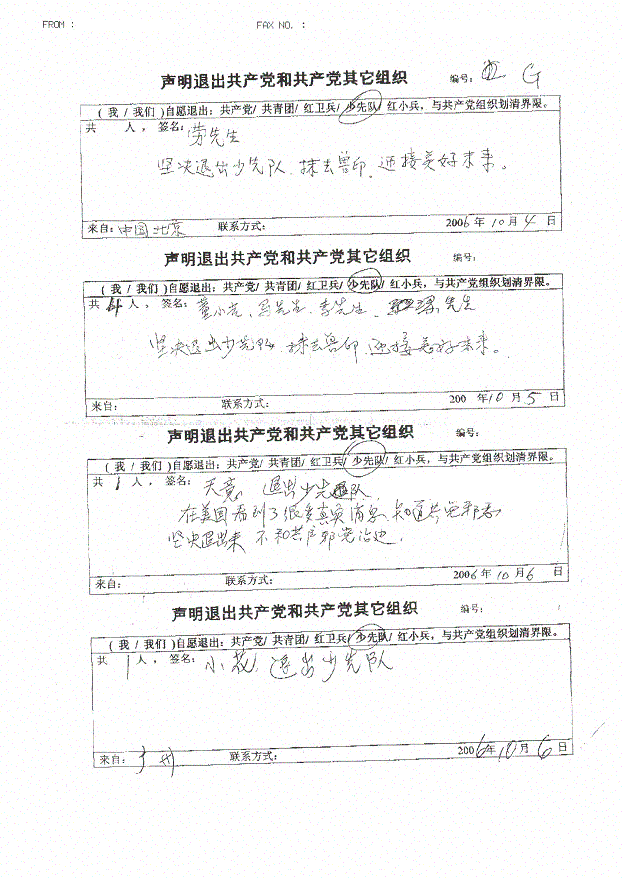 FROM :	FAX NO. :
声明退出共产党和共产党其它组织	编号: G
( 我 / 我们 )自愿退出: 共产党/ 共青团/ 红卫兵/ 少先队/ 红小兵，与共产党组织划清界限。
共 人， 签名: 劳先生
坚决退出少先队、抹去兽印、迎接美好未来。
来自: 中国北京	联系方式:	2006 年 10 月 4 日
声明退出共产党和共产党其它组织	编号:
( 我 / 我们 )自愿退出: 共产党/ 共青团/ 红卫兵/ 少先队/ 红小兵，与共产党组织划清界限。
共 人， 签名: 先生、李先生、先生
坚决退出少先队、抹去兽印、迎接美好未来。
来自:	联系方式:	200 年 10 月 5 日
声明退出共产党和共产党其它组织	编号:
( 我 / 我们 )自愿退出: 共产党/ 共青团/ 红卫兵/ 少先队/ 红小兵，与共产党组织划清界限。
共 1 人， 签名: 天竞 退出少先队
在美国看到了很多真实消息、知道共党邪恶
坚决退出来 不和共产邪党沾边.
来自:	联系方式:	2006 年 10 月 6 日
声明退出共产党和共产党其它组织	编号:
( 我 / 我们 )自愿退出: 共产党/ 共青团/ 红卫兵/ 少先队/ 红小兵，与共产党组织划清界限。
共 1 人， 签名: 小花 退出少先队
来自: 广州	联系方式:	2006 年 10 月 6 日